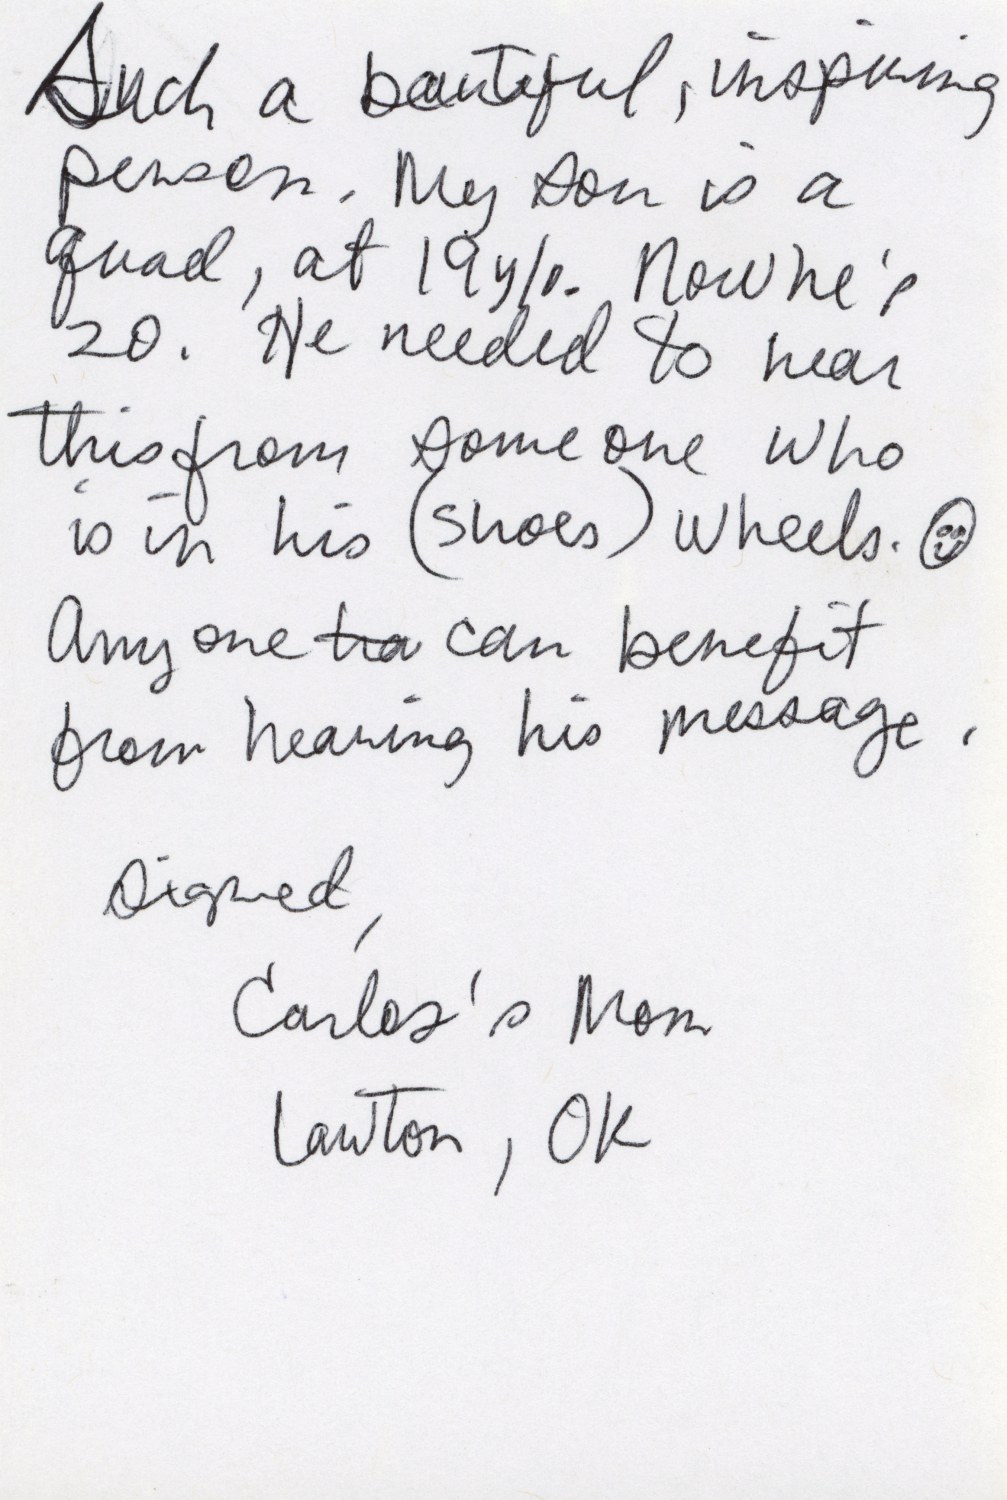 Such a beautiful, inspiring
person. My son is a
quad, at 19 y/o. Now he's
20. He needed to hear
this from someone who
is in his (shoes) wheels. ☺
Anyone ha can benefit
from hearing his message.
Signed,
Carlos's Mom
Lawton, OK